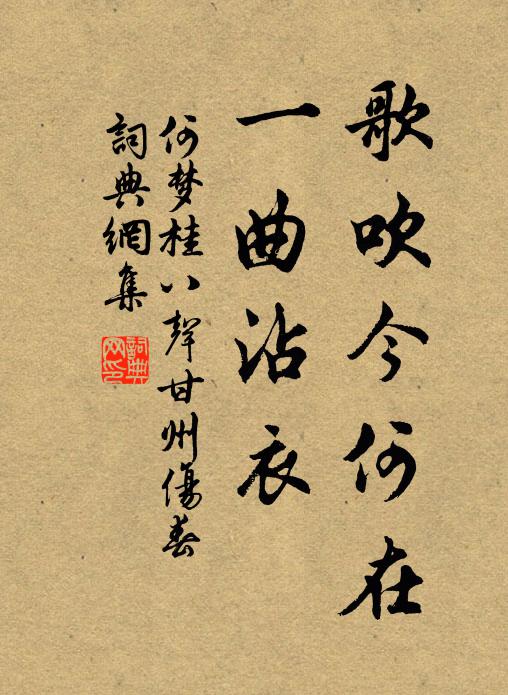 歌吹今何在
一曲沾衣
何梦桂八聲甘州傷春
詞典網集
詞典
网印